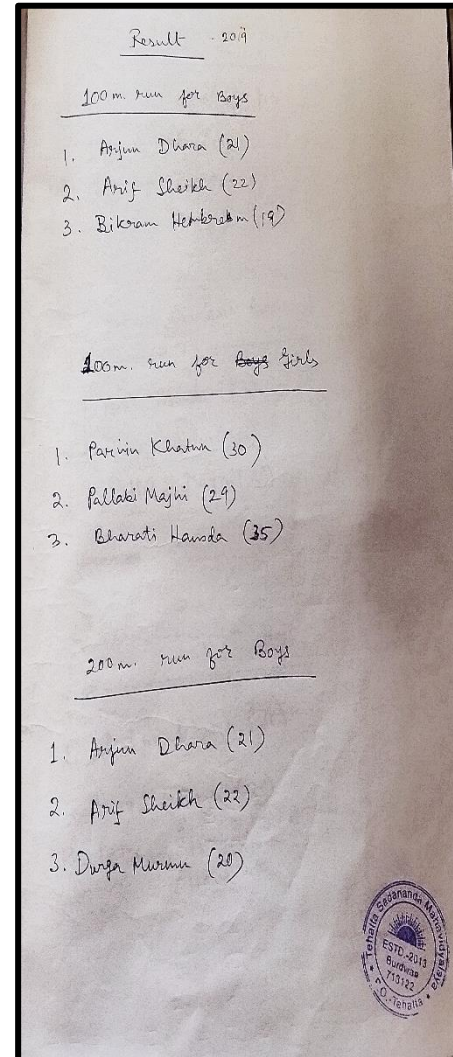 Result - 2019
100 m. run for Boys
1. Arjun Dhara (21)
2. Arif Sheikh (22)
3. Bikram Hembrem (19)
100m. run for Boys Girls
1. Parvin Khatun (30)
2. Pallabi Majhi (29)
3. Bharati Hansda (35)
200 m. run for Boys
1. Arjun Dhara (21)
2. Arif Sheikh (22)
3. Durga Murmu (20)
Tehatta Sadananda Mahavidyalaya
ESTD.-2013
Burdwan
713122
P.O. Tehatta